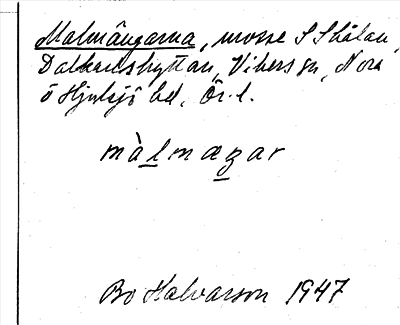 Malmängarna, mosse S Skålan,
Dalkarlshyttan, Vikers sn, Nora
o Hjulsjö bd, Ör. l.
màlmægar
Bo Halvarson 1947